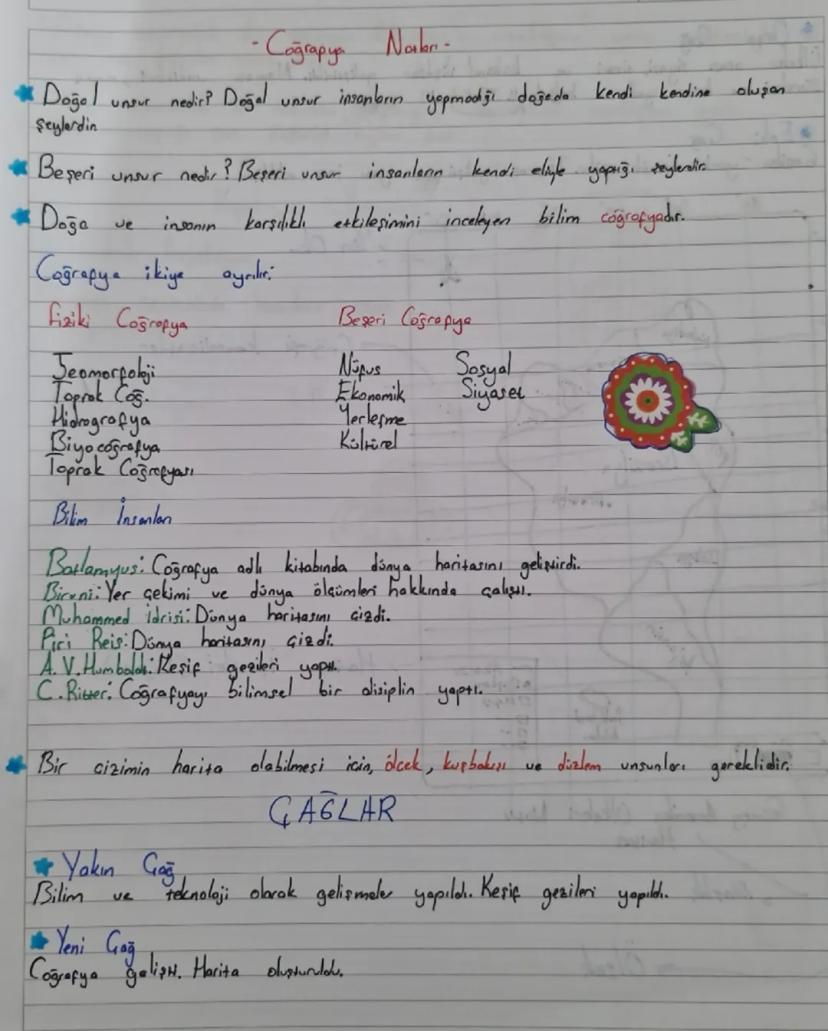 - Coğrafya Notları -
Doğal unsur nedir? Doğal unsur insanların yapmadığı doğada kendi kendine oluşan
şeylerdir
Beşeri unsur nedir? Beşeri unsur insanların kendi eliyle yaptığı şeylerdir.
Doğa ve insanın karşılıklı etkileşimini inceleyen bilim coğrafyadır.
Coğrafya ikiye ayrılır:
Fiziki Coğrafya Beşeri Coğrafya
Jeomorfoloji Nüfus Sosyal
Toprak Coğ. Ekonomik Siyaset
Hidrografya Yerleşme
Biyocoğrafya Kültürel
Toprak Coğrafyası
Bilim İnsanları
Batlamyus: Coğrafya adlı kitabında dünya haritasını geliştirdi.
Biruni: Yer çekimi ve dünya ölçümleri hakkında çalıştı.
Muhammed idrisi: Dünya haritasını çizdi.
Piri Reis: Dünya haritasını çizdi.
A.V. Humboldt: Keşif gezileri yaptı.
C. Ritter: Coğrafyayı bilimsel bir disiplin yaptı.
Bir çizimin harita olabilmesi için, ölçek, kuşbakışı ve düzlem unsurları gereklidir.
ÇAĞLAR
Yakın Çağ
Bilim ve teknoloji olarak gelişmeler yapıldı. Keşif gezileri yapıldı.
Yeni Çağ
Coğrafya gelişti. Harita oluşturuldu.